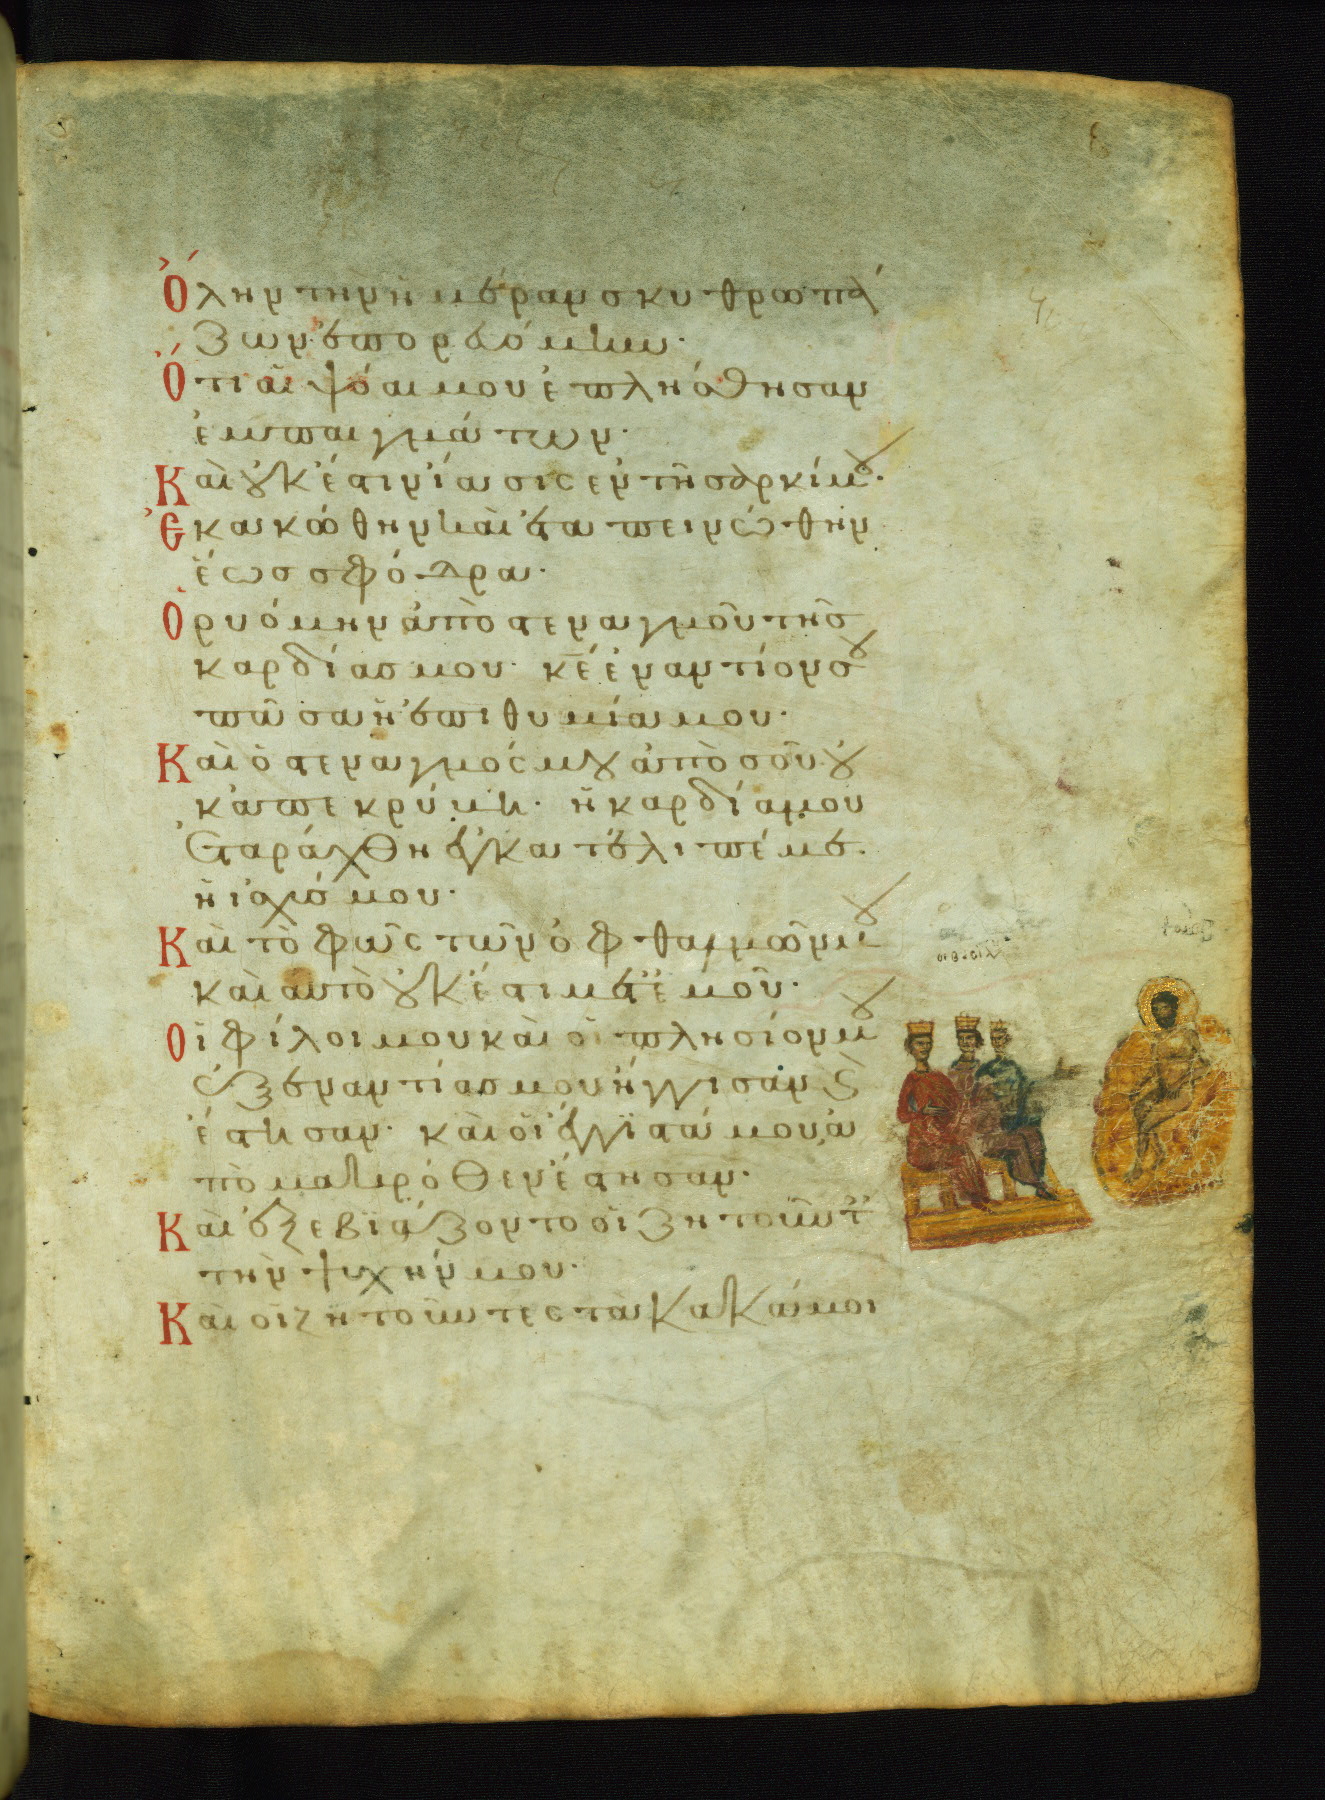 Ὅλην τὴν ἡμέραν σκυθρωπά
ζων ἐπορευόμην·
Ὅτι αἱ ψόαι μου ἐπλήσθησαν
ἐμπαιγμάτων·
Καὶ οὐκ ἔστιν ἴασις ἐν τῆ σαρκί μου·
Ἐκακώθην καὶ ἐταπεινώθην
ἕως σφόδρα·
Ὠρυόμην ἀπὸ στεναγμοῦ τῆς
καρδίας μου· κ̅ε̅ ἐναντίον σου
πᾶσα ἡ ἐπιθυμία μου·
Καὶ ὁ στεναγμός μου ἀπὸ σοῦ οὐ
κ ἀπεκρύβη· ἡ καρδία μου
Ἐταράχθη ἐγκατέλιπέ με·
ἡ ἰσχύς μου·
Καὶ τὸ φῶς τῶν ὀφθαλμῶν μου
καὶ αυτὸ οὐκ ἔστι μετ ἐμοῦ·
Οἱ φίλοι μου καὶ οἱ πλησίον μου
ἐξεναντίας μου ἤγγισαν ϗ
ἔστησαν· καὶ οἱ ἔγγιστά μου ἀ
πὸ μακρόθεν ἔστησαν·
Καὶ ἐξεβιάζοντο οἱ ζητοῦντ
τὴν ψυχήν μου·
Καὶ οἱ ζητοῦντες τὰ κακά μοι